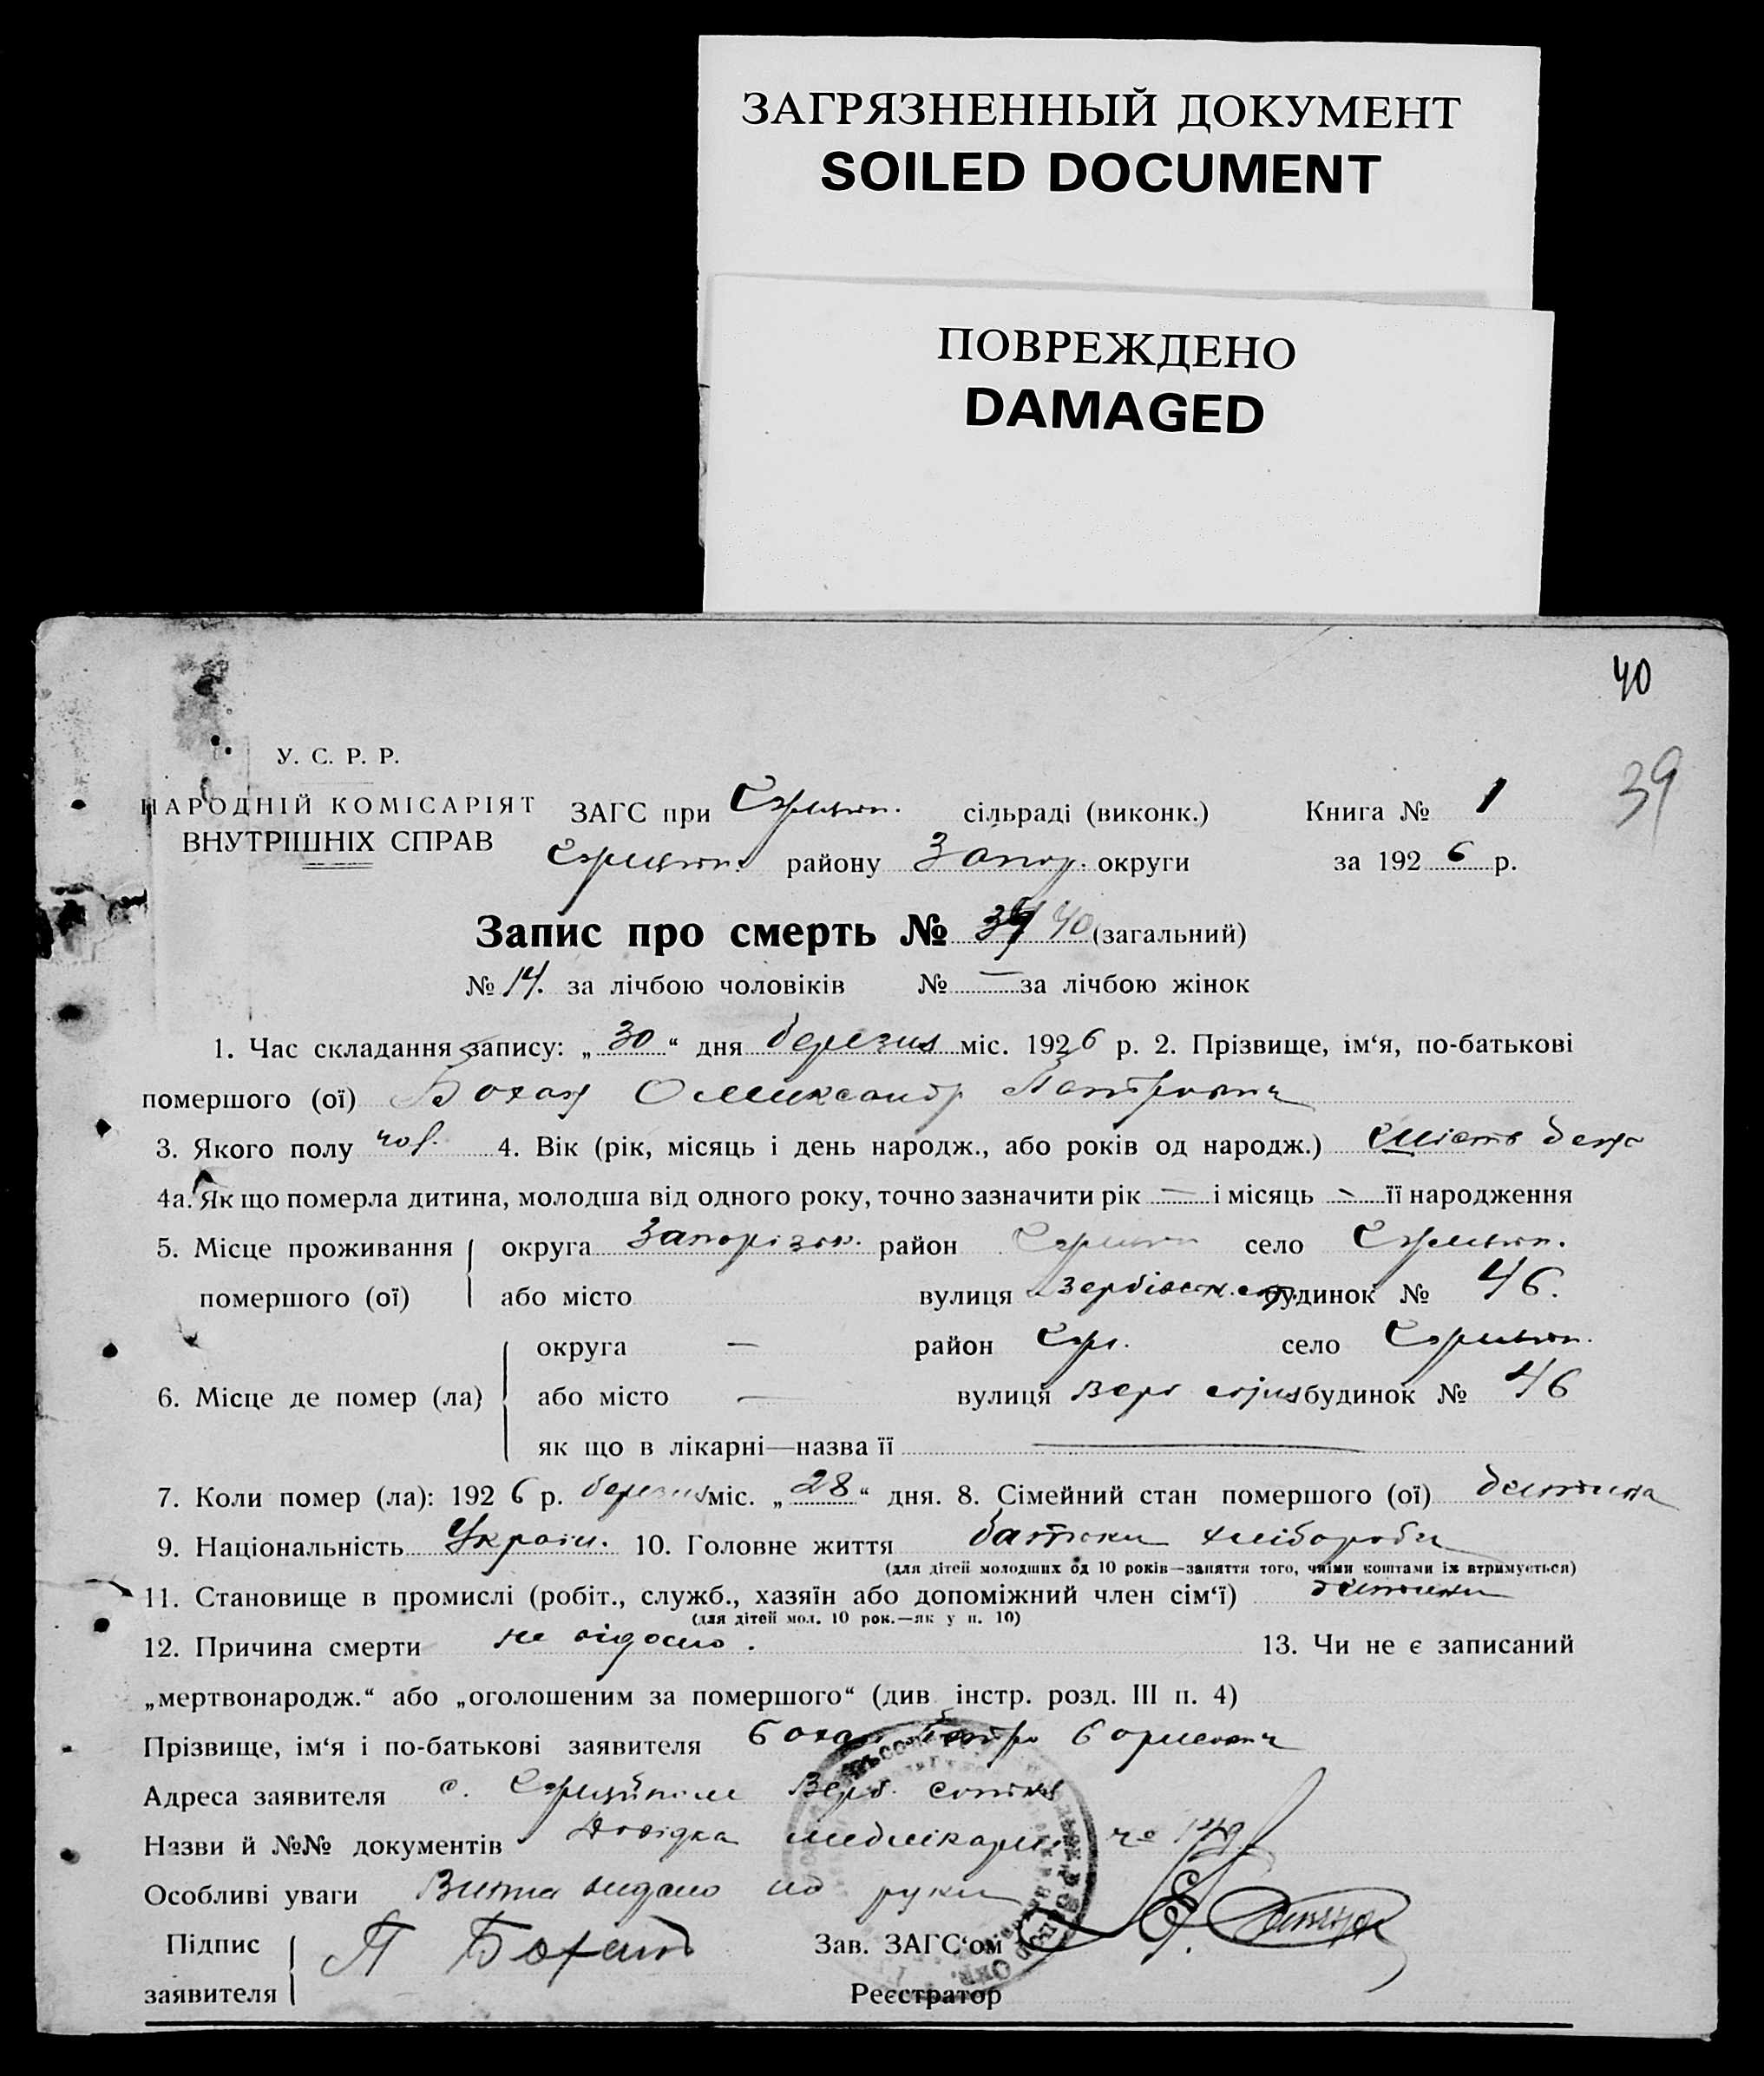 ЗАГРЯЗНЕННЫЙ ДОКУМЕНТ
SOILED DOCUMENT
ПОВРЕЖДЕНО
DAMAGED
40
39
У. С. Р. Р.
НАРОДНІЙ КОМІСАРІЯТ
ВНУТРІШНІХ СПРАВ
ЗАГС при сільраді (виконк.) Книга № 1
району Запор. округи за 1926 р.
Запис про смерть № 39 40 (загальний)
№ 14. за лічбою чоловіків № — за лічбою жінок
1. Час складання запису: „30“ дня березня міс. 1926 р. 2. Прізвище, ім‘я, по-батькові
помершого (ої) Бохан Олександр Петрович
3. Якого полу чол. 4. Вік (рік, місяць і день народж., або років од народж.) шість
4а. Як що померла дитина, молодша від одного року, точно зазначити рік — і місяць — її народження
5. Місце проживання округа Запорізьк. район село
помершого (ої) або місто вулиця будинок № 46.
округа — район село
6. Місце де помер (ла) або місто — вулиця будинок № 46
як що в лікарні—назва її —
7. Коли помер (ла): 1926 р. березня міс. „28“ дня. 8. Сімейний стан помершого (ої) дитина
9. Національність Україн. 10. Головне життя батьки хлібороби
(для дітей молодших од 10 років—заняття того, чиїми коштами їх втримується)
11. Становище в промислі (робіт., служб., хазяїн або допоміжний член сім‘ї) дитина
(для дітей мол. 10 рок.—як у п. 10)
12. Причина смерти не відомо. 13. Чи не є записаний
„мертвонародж.“ або „оголошеним за помершого“ (див. інстр. розд. III п. 4)
Прізвище, ім‘я і по-батькові заявителя Бохан Петро Борисович
Адреса заявителя с. Верб.
Назви й №№ документів Довідка №
Особливі уваги видано на руки
Підпис П Бохан Зав. ЗАГС‘ом
заявителя Реєстратор